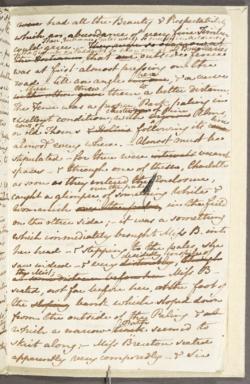 had all the Beauty & Respectability
which an abundance of very fine Timber
could give.
was at first almost pressing on the
road - till an angle here, & a curve
there threw them to a better distance.
The Fence was a proper Park paling in
excellent condition; with clusters of fine Elms,
or old Thorns & Hollies following its line
almost every where. - Almost must be
stipulated - for there were vacant
spaces - & through one of these, Charlotte
as soon as they entered the Enclosure,
caught a glimpse over the pales of something White &
Womanish in the field
on the other side; - it was a something
which immediately brought Miss B. into
her head - & stepping to the pales, she
saw indeed - & very decidedly,
- Miss B
seated, not far before her, at the foot of
the bank which sloped down
from the outside of the Paling &
which a narrow Path seemed to
skirt along; - Miss Brereton seated
apparently very composedly - & Sir